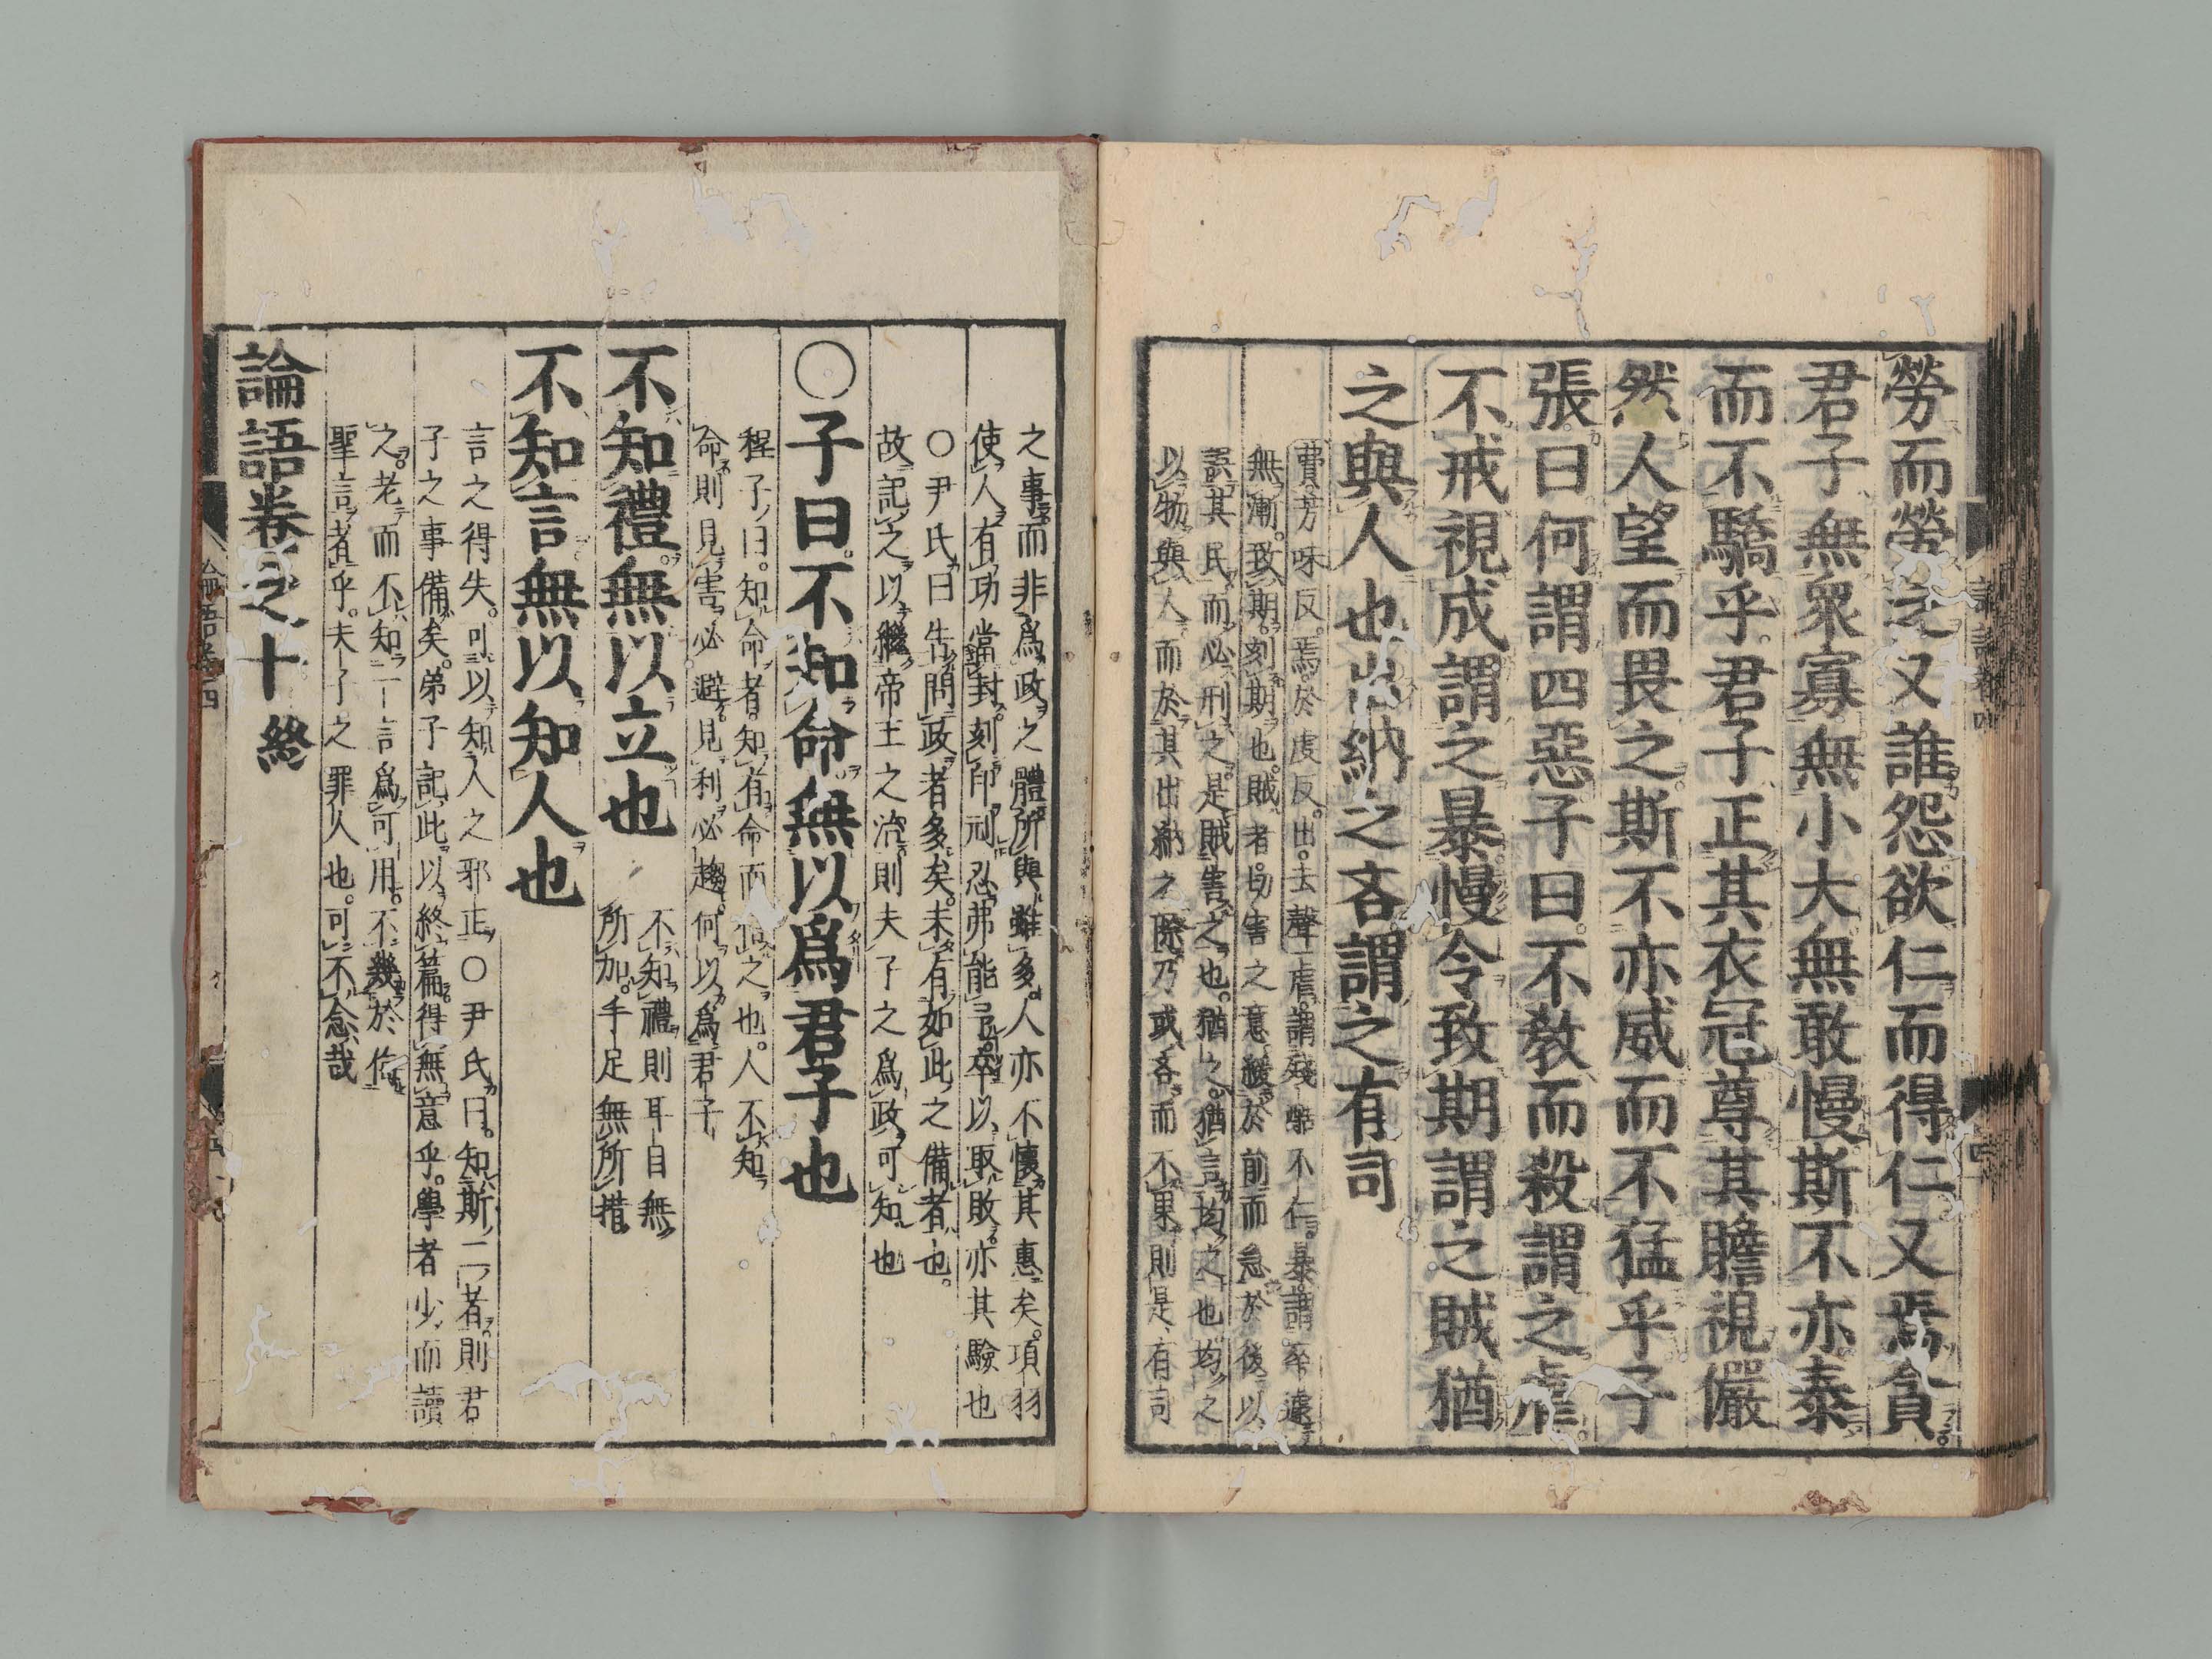 勞而勞之又誰怨欲仁而得仁又焉貪
君子無衆寡無小大無敢慢斯不亦泰
而不驕乎君子正其衣冠尊其瞻視儼
然人望而畏之斯不亦威而不猛乎子
張曰何謂四惡子曰不敎而殺謂之虐
不戒視成謂之暴慢令致期謂之賊猶
之與人也出納之吝謂之有司
費芳味反焉於虔反出去聲虐謂殘酷不仁暴謂卒遽
無漸致期刻期也賊者切害之意緩於前而急於後以
誤其民而必刑之是賊害之也猶之猶言均之也均之
以物與人而於其出納之際乃或吝而不果則是有司
之事而非爲政之體所與雖多人亦不懷其惠矣項羽
使人有功當封刻印刓忍弗能予卒以取敗亦其驗也
○尹氏曰告問政者多矣未有如此之備者也
故記之以繼帝王之治則夫子之爲政可知也
○子曰不知命無以爲君子也
程子曰知命者知有命而信之也人不知
命則見害必避見利必趨何以爲君子
不知禮無以立也
不知禮則耳目無
所加手足無所措
不知言無以知人也
言之得失可以知人之邪正○尹氏曰知斯三者則君
子之事備矣弟子記此以終篇得無意乎學者少而讀
之老而不知一言爲可用不幾於侮
聖言者乎夫子之罪人也可不念哉
論語卷之十終